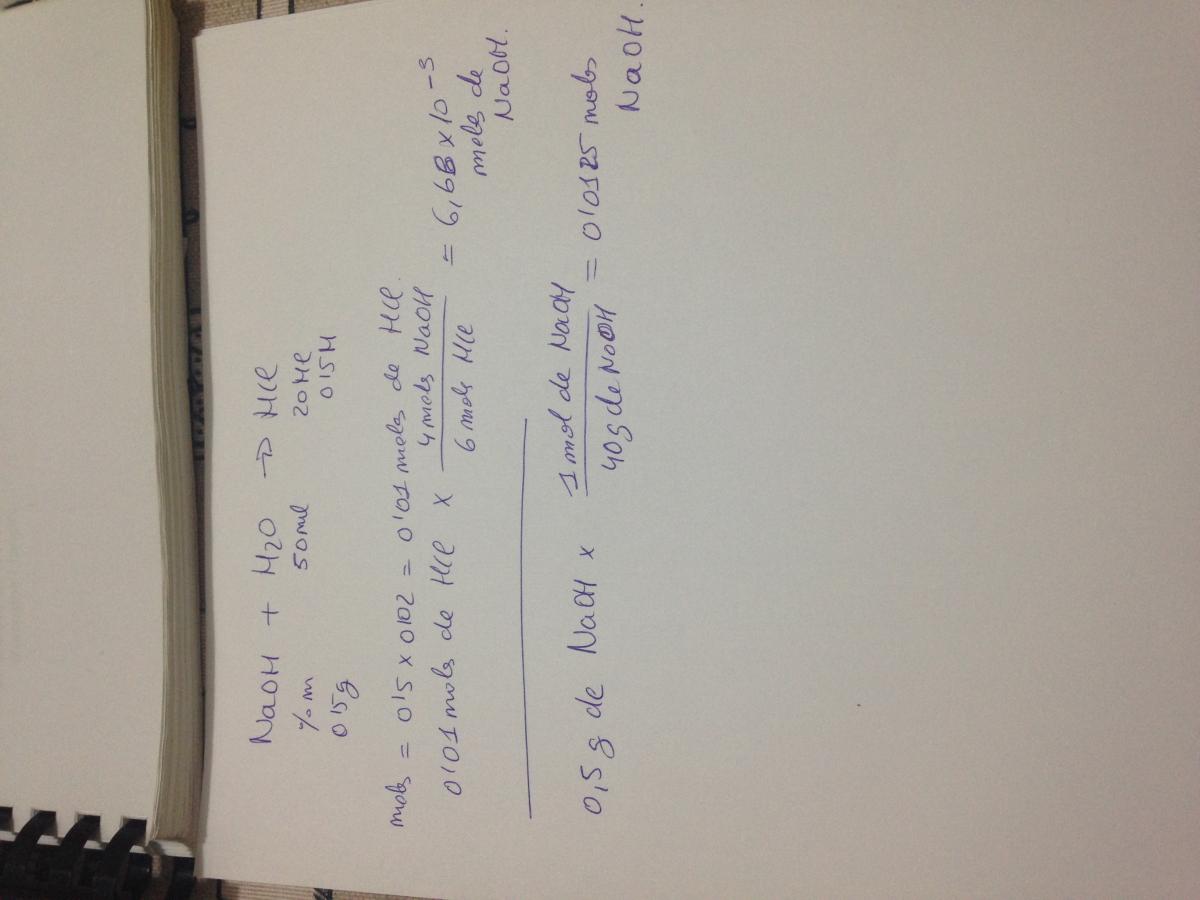 NaOH + H2O → HCl
%m 50ml 20Ml
0'5g 0'5M
mols = 0'5 x 0'02 = 0'01 mols de HCl.
0'01 mols de HCl x 4 mols NaOH / 6 mols HCl = 6,68 x 10^-3 mols de NaOH.
0,5g de NaOH x 1 mol de NaOH / 40g de NaOH = 0'0125 mols NaOH.